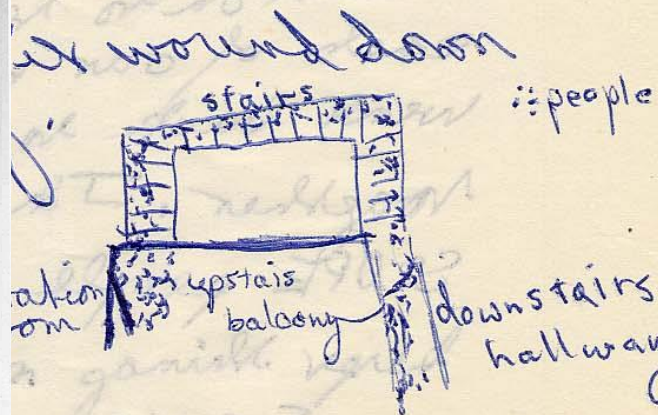 wound down
stairs
:: people
ation upstais
om balcony downstairs
hallway